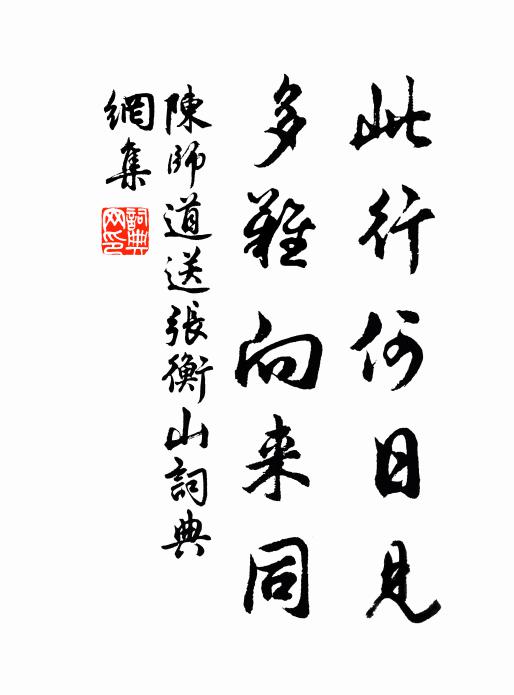 此行何日見
多難向来同
陳師道送張衡山詞典
網集
詞典网印